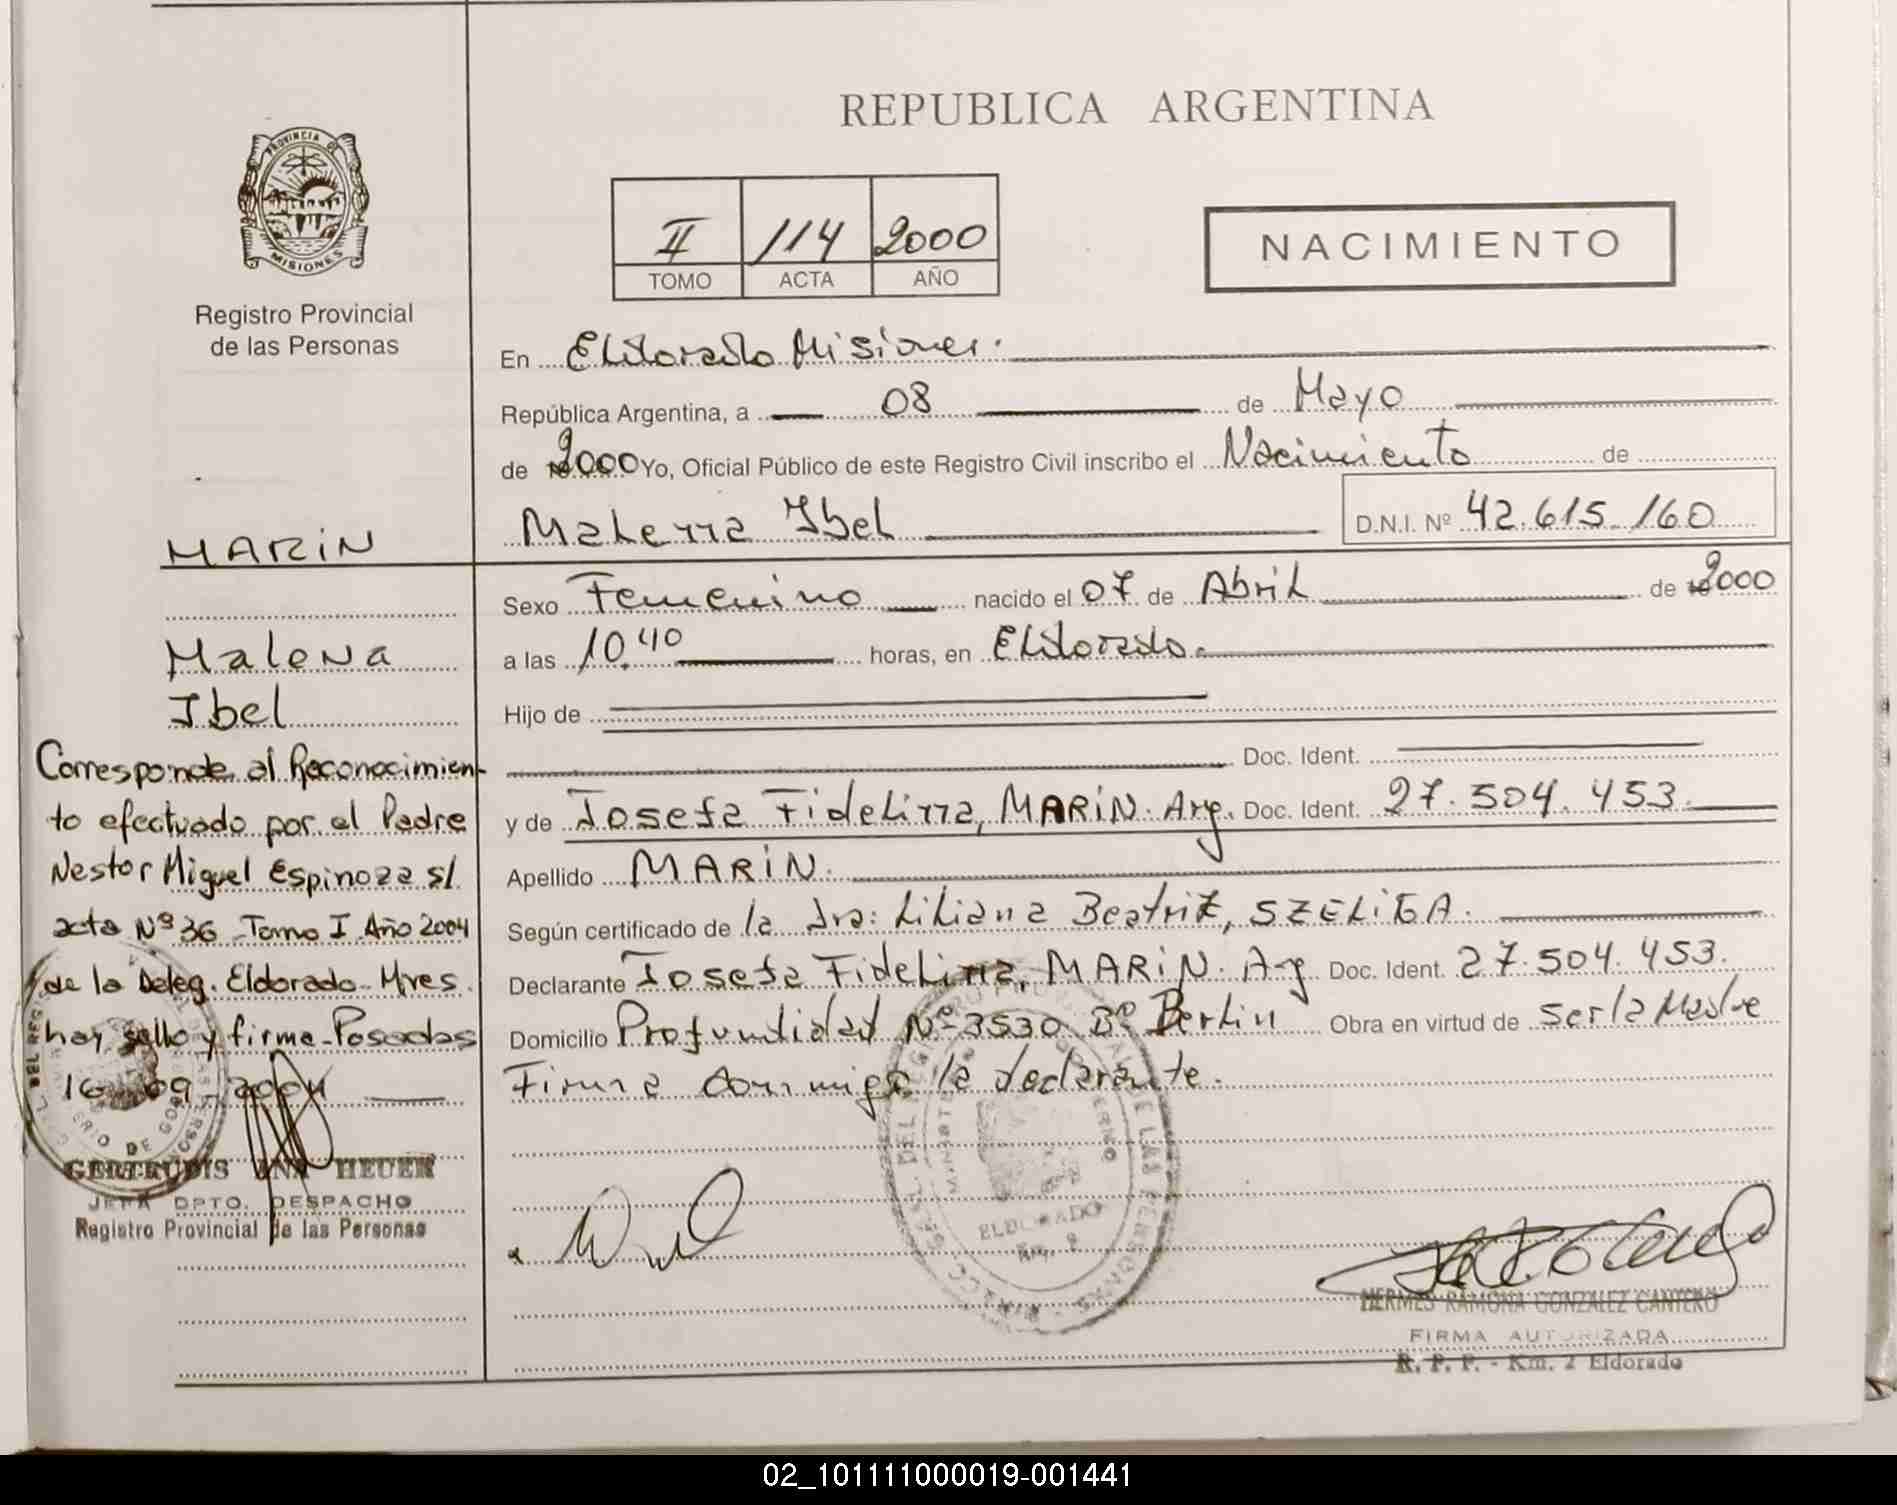 REPUBLICA ARGENTINA
PROVINCIA DE
MISIONES
Registro Provincial
de las Personas
II 114 2000
TOMO ACTA AÑO
NACIMIENTO
En Eldorado Misiones.
República Argentina, a 08 de Mayo
de 2000 Yo, Oficial Público de este Registro Civil inscribo el Nacimiento de
Malenna Ibel D.N.I. Nº 42.615.160
Sexo Femenino nacido el 07 de Abril de 2000
a las 10,40 horas, en Eldorado.
Hijo de
Doc. Ident.
y de Josefa Fidelina, MARiN. Arg. Doc. Ident. 27.504.453.
Apellido MARiN.
Según certificado de la dra: Liliana Beatriz, SZELiGA.
Declarante Josefa Fidelina, MARiN. Arg Doc. Ident. 27.504.453.
Domicilio Profundidad Nº 3530 Bº Berlin Obra en virtud de ser la Madre
Firma conmigo la declarante.
MARiN
Malena
Ibel
Corresponde al Reconocimien-
to efectuado por el Padre
Nestor Miguel Espinoza s/
acta Nº 36 Tomo I Año 2004
de la Deleg. Eldorado-Mnes.
hay sello y firma-Posadas
16 09 2004
GERTRUDIS ANA HEUER
JEFA DPTO. DESPACHO
Registro Provincial de las Personas
ELDORADO
HERMES RAMONA GONZALEZ CANTERO
FIRMA AUTORIZADA
R. P. P. - Km. 2 Eldorado
02_101111000019-001441